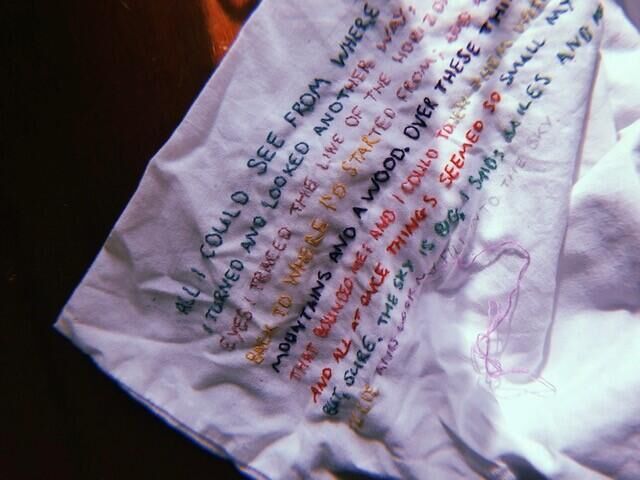 ALL I COULD SEE FROM WHERE
I TURNED AND LOOKED ANOTHER WAY;
EYES I TRACED THE LINE OF THE HORIZO
BACK TO WHERE I'D STARTED FROM; AND A
MOUNTAINS AND A WOOD. OVER THESE THI
THAT BOUNDED ME; AND I COULD
AND ALL AT ONCE THINGS SEEMED SO SMALL MY
BUT, SURE, THE SKY IS BIG, I SAID; MILES AND M
TO THE SKY